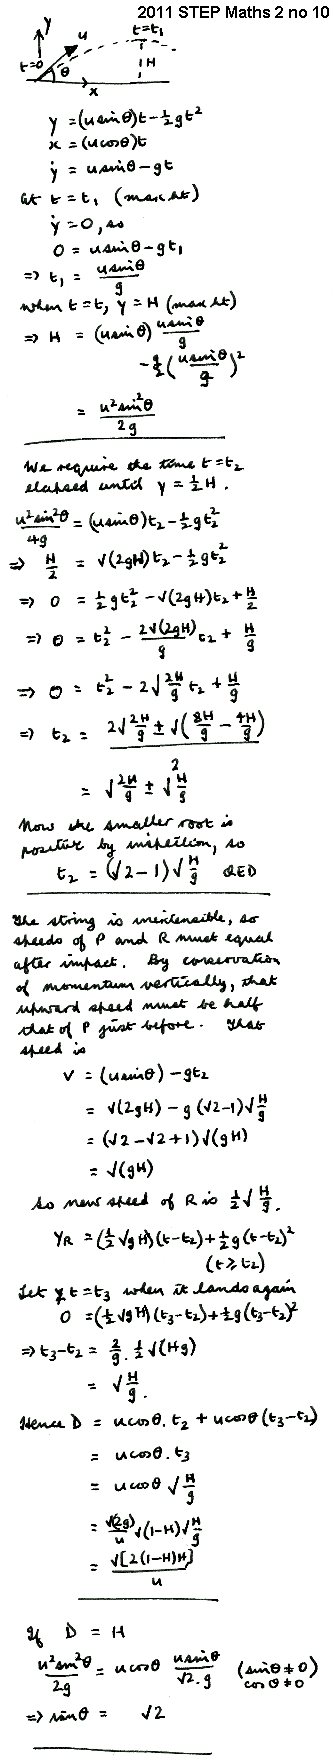 2011 STEP Maths 2 no 10
y
u
t=t₁
t=0
θ
H
x
y = (u sinθ)t - ½gt²
x = (u cosθ)t
ẏ = u sinθ - gt
At t = t₁ (max ht)
ẏ = 0, so
0 = u sinθ - gt₁
⇒ t₁ = u sinθ / g
when t = t, y = H (max ht)
⇒ H = (u sinθ) u sinθ / g
- g/2 (u sinθ / g)²
= u² sin²θ / 2g
We require the time t = t₂
elapsed until y = ½H.
u² sin²θ / 4g = (u sinθ)t₂ - ½gt₂²
⇒ H/2 = √(2gH) t₂ - ½gt₂²
⇒ 0 = ½gt₂² - √(2gH)t₂ + H/2
⇒ 0 = t₂² - 2√(2gH)/g t₂ + H/g
⇒ 0 = t₂² - 2√(2H/g) t₂ + H/g
⇒ t₂ = (2√(2H/g) ± √(8H/g - 4H/g)) / 2
= √(2H/g) ± √(H/g)
Now the smaller root is
positive by inspection, so
t₂ = (√2 - 1)√(H/g) QED
The string is inextensible, so
speeds of P and R must equal
after impact. By conservation
of momentum vertically, that
upward speed must be half
that of P just before. That
speed is
V = (u sinθ) - gt₂
= √(2gH) - g(√2 - 1)√(H/g)
= (√2 - √2 + 1)√(gH)
= √(gH)
So new speed of R is ½√(H/g).
y_R = (½√gH)(t - t₂) + ½g(t - t₂)²
(t ≥ t₂)
Let t = t₃ when it lands again
0 = (½√gH)(t₃ - t₂) + ½g(t₃ - t₂)²
⇒ t₃ - t₂ = 2/g · ½√(Hg)
= √(H/g).
Hence D = u cosθ. t₂ + u cosθ(t₃ - t₂)
= u cosθ. t₃
= u cosθ √(H/g)
= √(2g)/u √(1-H)√(H/g)
= √[2(1-H)H] / u
If D = H
u² sin²θ / 2g = u cosθ u sinθ / √2.g (sinθ ≠ 0)
cosθ ≠ 0
⇒ sinθ = √2